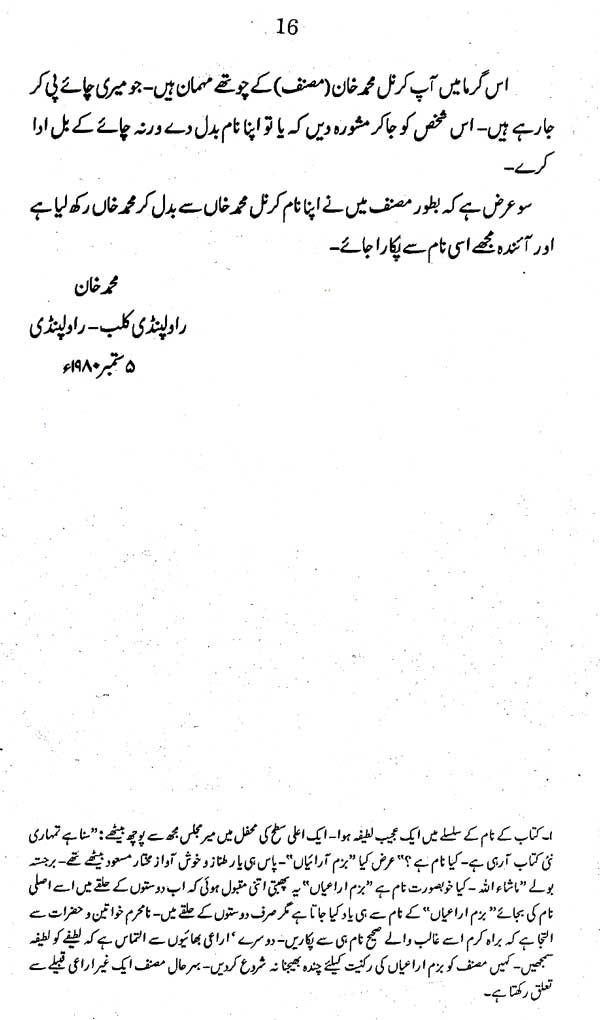 16
اس گرما میں آپ کرنل محمد خان (مصنف) کے چوتھے مہمان ہیں۔ جو میری چائے پی کر
جا رہے ہیں۔ اس شخص کو جا کر مشورہ دیں کہ یا تو اپنا نام بدل دے ورنہ چائے کے بل ادا
کرے۔
سو عرض ہے کہ بطور مصنف میں نے اپنا نام کرنل محمد خاں سے بدل کر محمد خاں رکھ لیا ہے
اور آئندہ مجھے اسی نام سے پکارا جائے۔
محمد خان
راولپنڈی کلب – راولپنڈی
۵ ستمبر ۱۹۸۰ء
۱۔ کتاب کے نام کے سلسلے میں ایک عجیب لطیفہ ہوا۔ ایک اعلیٰ سطح کی محفل میں میر مجلس مجھ سے پوچھ بیٹھے: "سنا ہے تمہاری
نئی کتاب آ رہی ہے۔ کیا نام ہے؟" عرض کیا "بزم آرائیاں"۔ پاس ہی یار طناز و خوش آواز مختار مسعود بیٹھے تھے۔ برجستہ
بولے "ماشاء اللہ۔ کیا خوبصورت نام ہے "بزم اراعیاں" یہ پھبتی اتنی مقبول ہوئی کہ اب دوستوں کے حلقے میں اسے اصلی
نام کی بجائے "بزم اراعیاں" کے نام سے ہی یاد کیا جاتا ہے مگر صرف دوستوں کے حلقے میں۔ نامحرم خواتین و حضرات سے
التجا ہے کہ براہ کرم اسے غالب والے صحیح نام ہی سے پکاریں۔ دوسرے 'اراعی بھائیوں سے التماس ہے کہ لطیفے کو لطیفہ
سمجھیں۔ کہیں مصنف کو بزم اراعیاں کی رکنیت کیلئے چندہ بھیجنا نہ شروع کر دیں۔ بہرحال مصنف ایک غیر اراعی قبیلے سے
تعلق رکھتا ہے۔